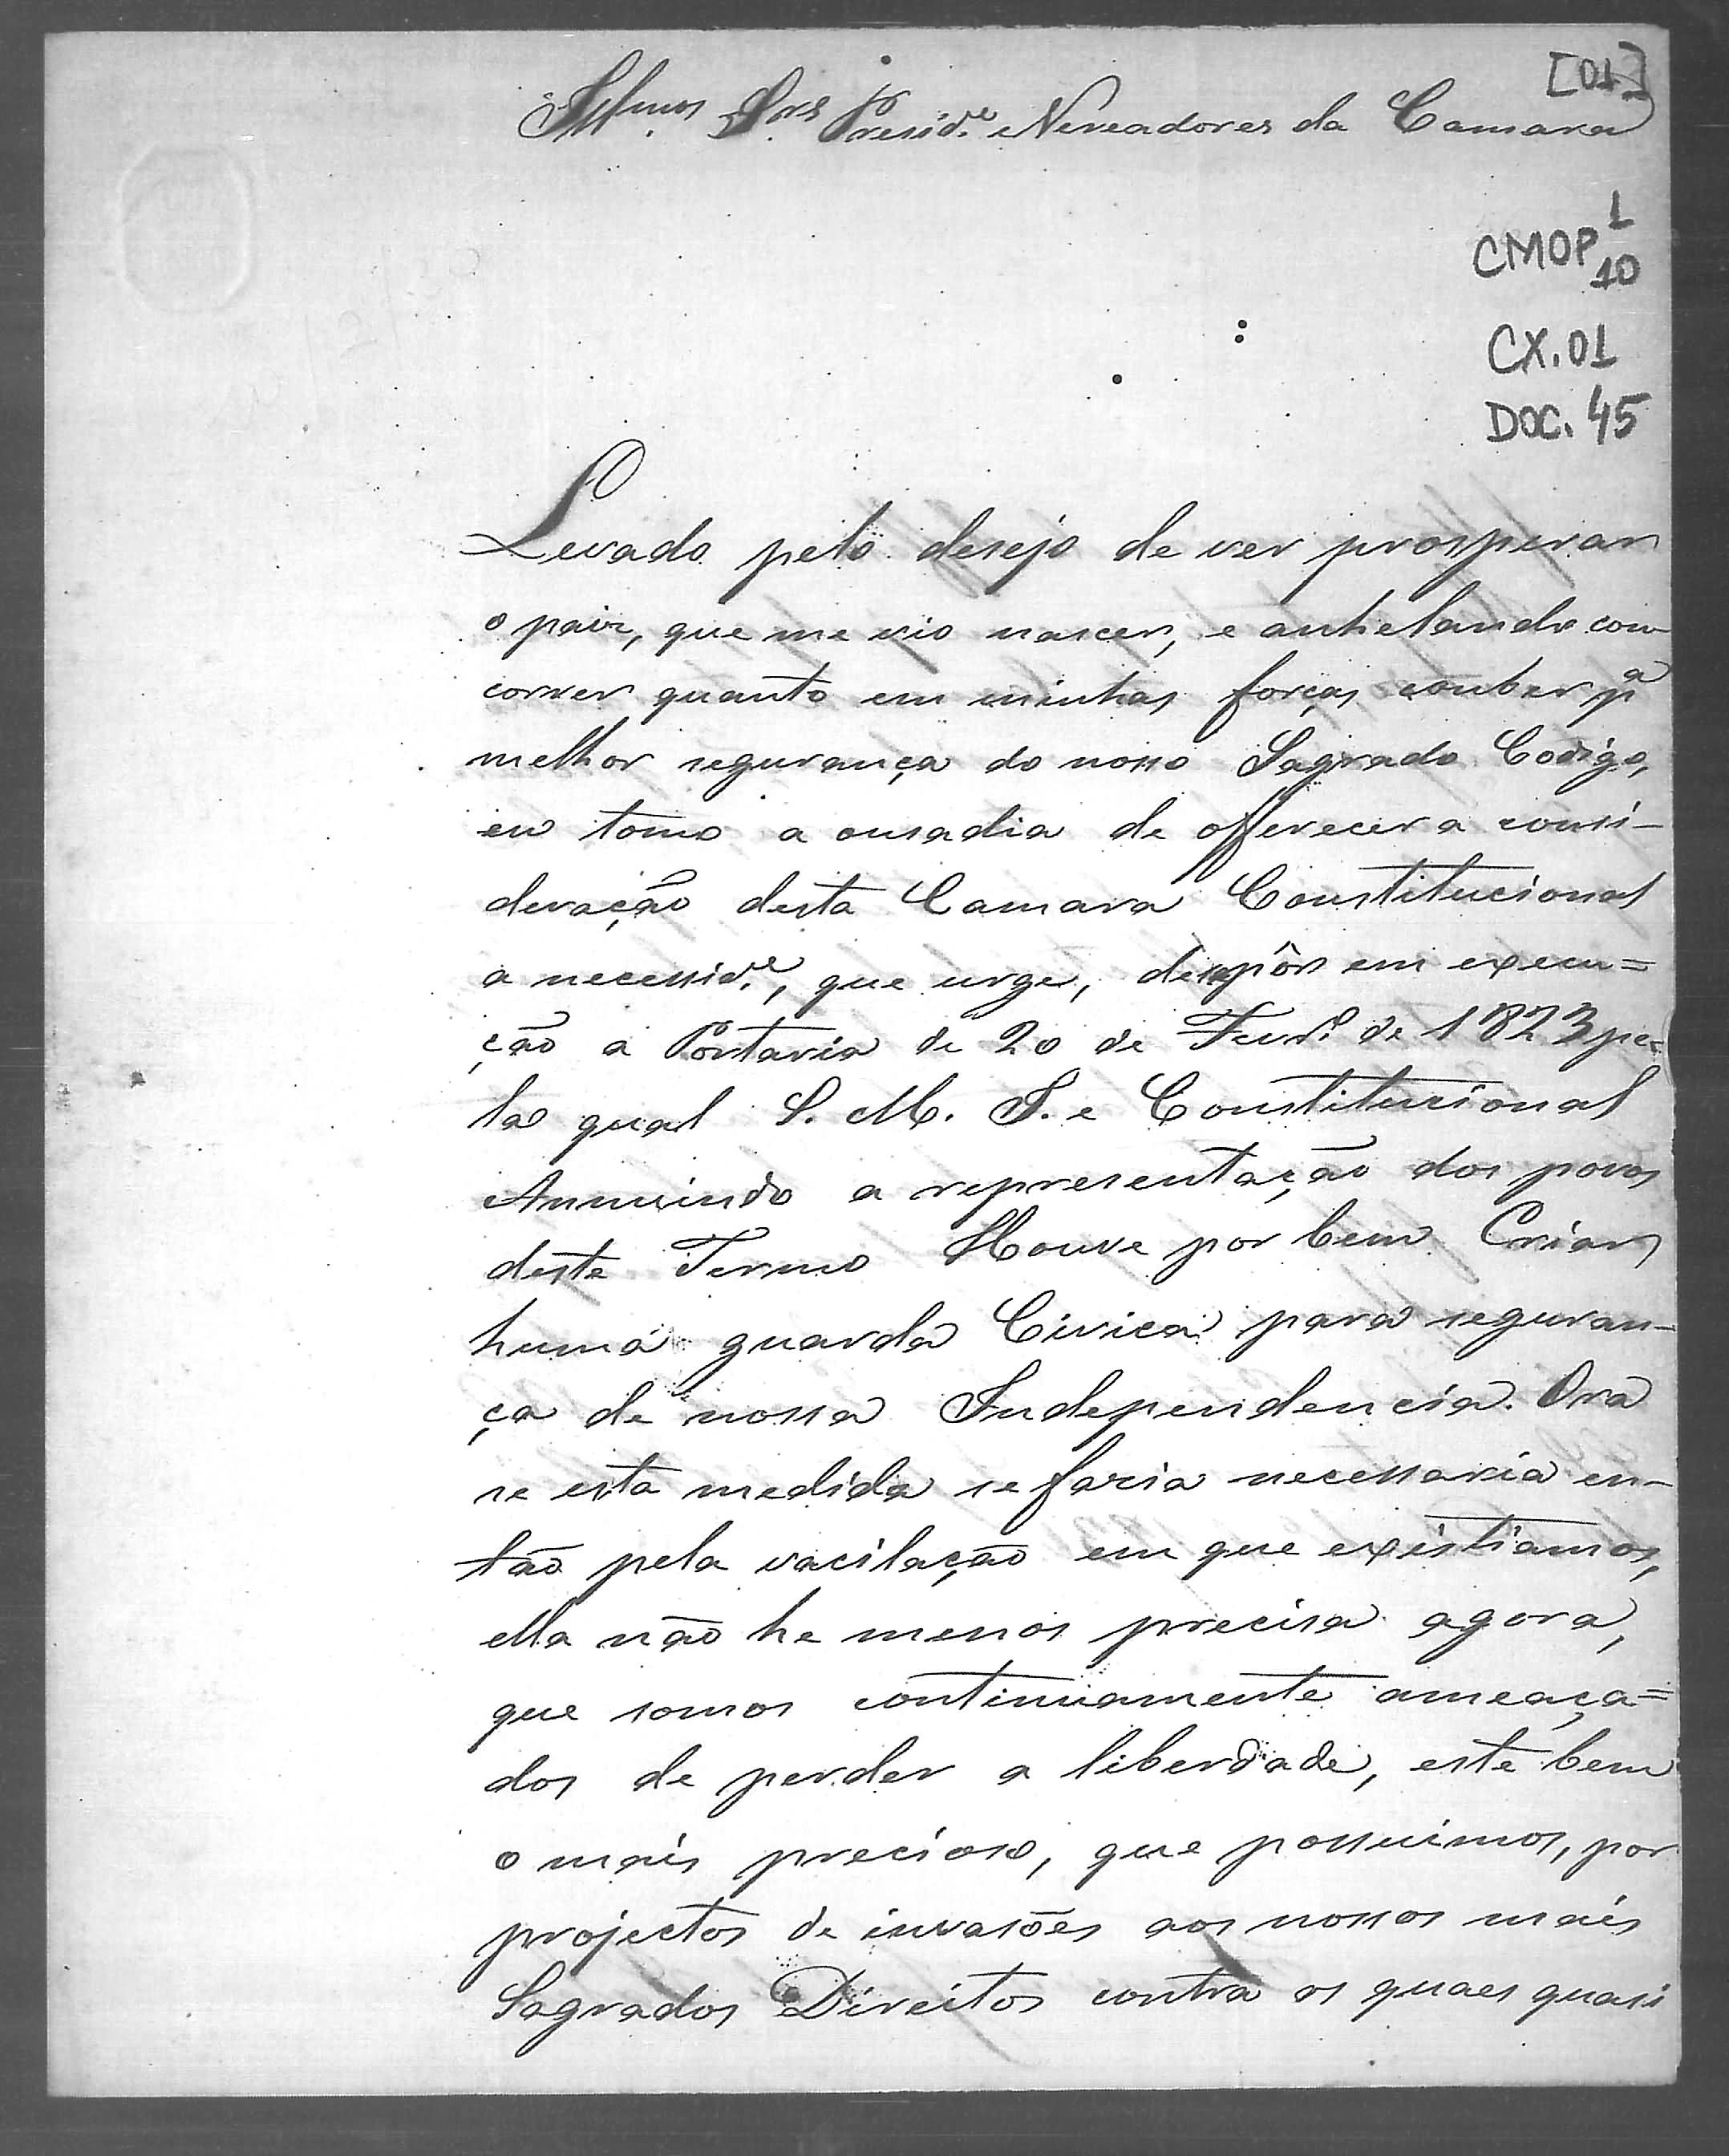 [01]
Illmos Snrs Preside e Vereadores da Camara
CMOP 1
10
CX. 01
DOC. 45
Levado pelo desejo de ver prosperar
o paiz, que me vio nascer, e anhelando con
correr quanto em minhas forças couber pa
melhor segurança do nosso Sagrado Codigo,
eu tomo a ousadia de offerecer a consi-
deração desta Camara Constitucional
a necesside, que urge, de pôr em execu=
ção a Portaria de 20 de Fevro de 1823 pe-
la qual S. M. I. e Constitucional
Annuindo a representação dos povos
deste Termo Houve por bem Criar
huma guarda Civica para seguran-
ça de nossa Independencia. Ora
se esta medida se fazia necessaria en-
tão pela vacilação em que existiamos,
ella não he menos precisa agora,
que somos continuamente ameaça=
dos de perder a liberdade, este bem
o mais precioso, que possuimos, por
projectos de invasões aos nossos mais
Sagrados Direitos contra os quaes quasi